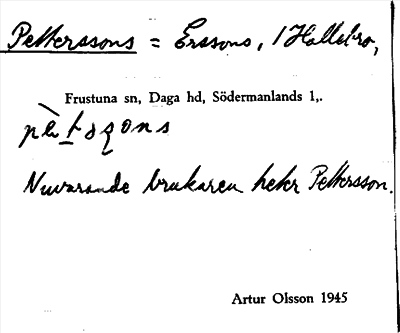 Petterssons = Erssons, i Hallebro,
Frustuna sn, Daga hd, Södermanlands l,.
Nuvarande brukaren heter Pettersson.
Artur Olsson 1945